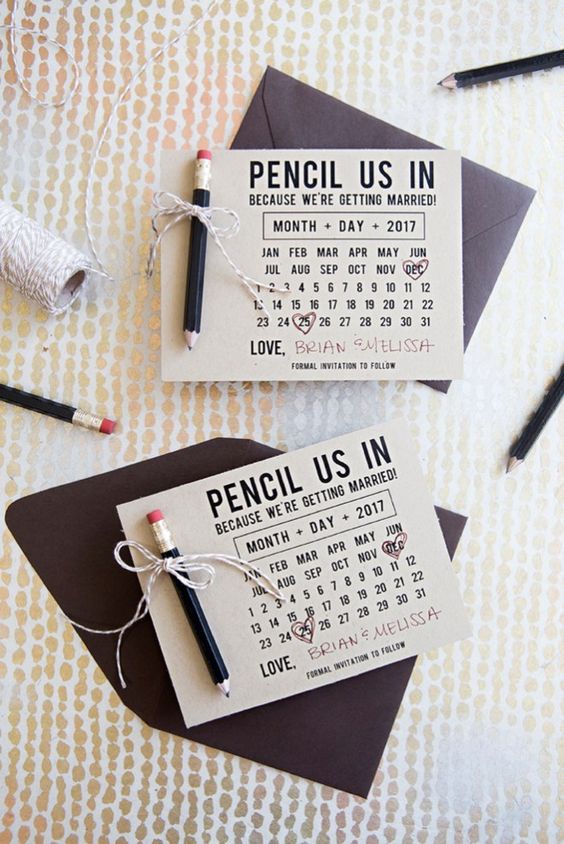 PENCIL US IN
BECAUSE WE'RE GETTING MARRIED!
MONTH + DAY + 2017
JAN FEB MAR APR MAY JUN
JUL AUG SEP OCT NOV DEC
1 2 3 4 5 6 7 8 9 10 11 12
13 14 15 16 17 18 19 20 21 22
23 24 25 26 27 28 29 30 31
LOVE, BRIAN & MELISSA
FORMAL INVITATION TO FOLLOW
PENCIL US IN
BECAUSE WE'RE GETTING MARRIED!
MONTH + DAY + 2017
JAN FEB MAR APR MAY JUN
JUL AUG SEP OCT NOV DEC
1 2 3 4 5 6 7 8 9 10 11 12
13 14 15 16 17 18 19 20 21 22
23 24 25 26 27 28 29 30 31
LOVE, BRIAN & MELISSA
FORMAL INVITATION TO FOLLOW